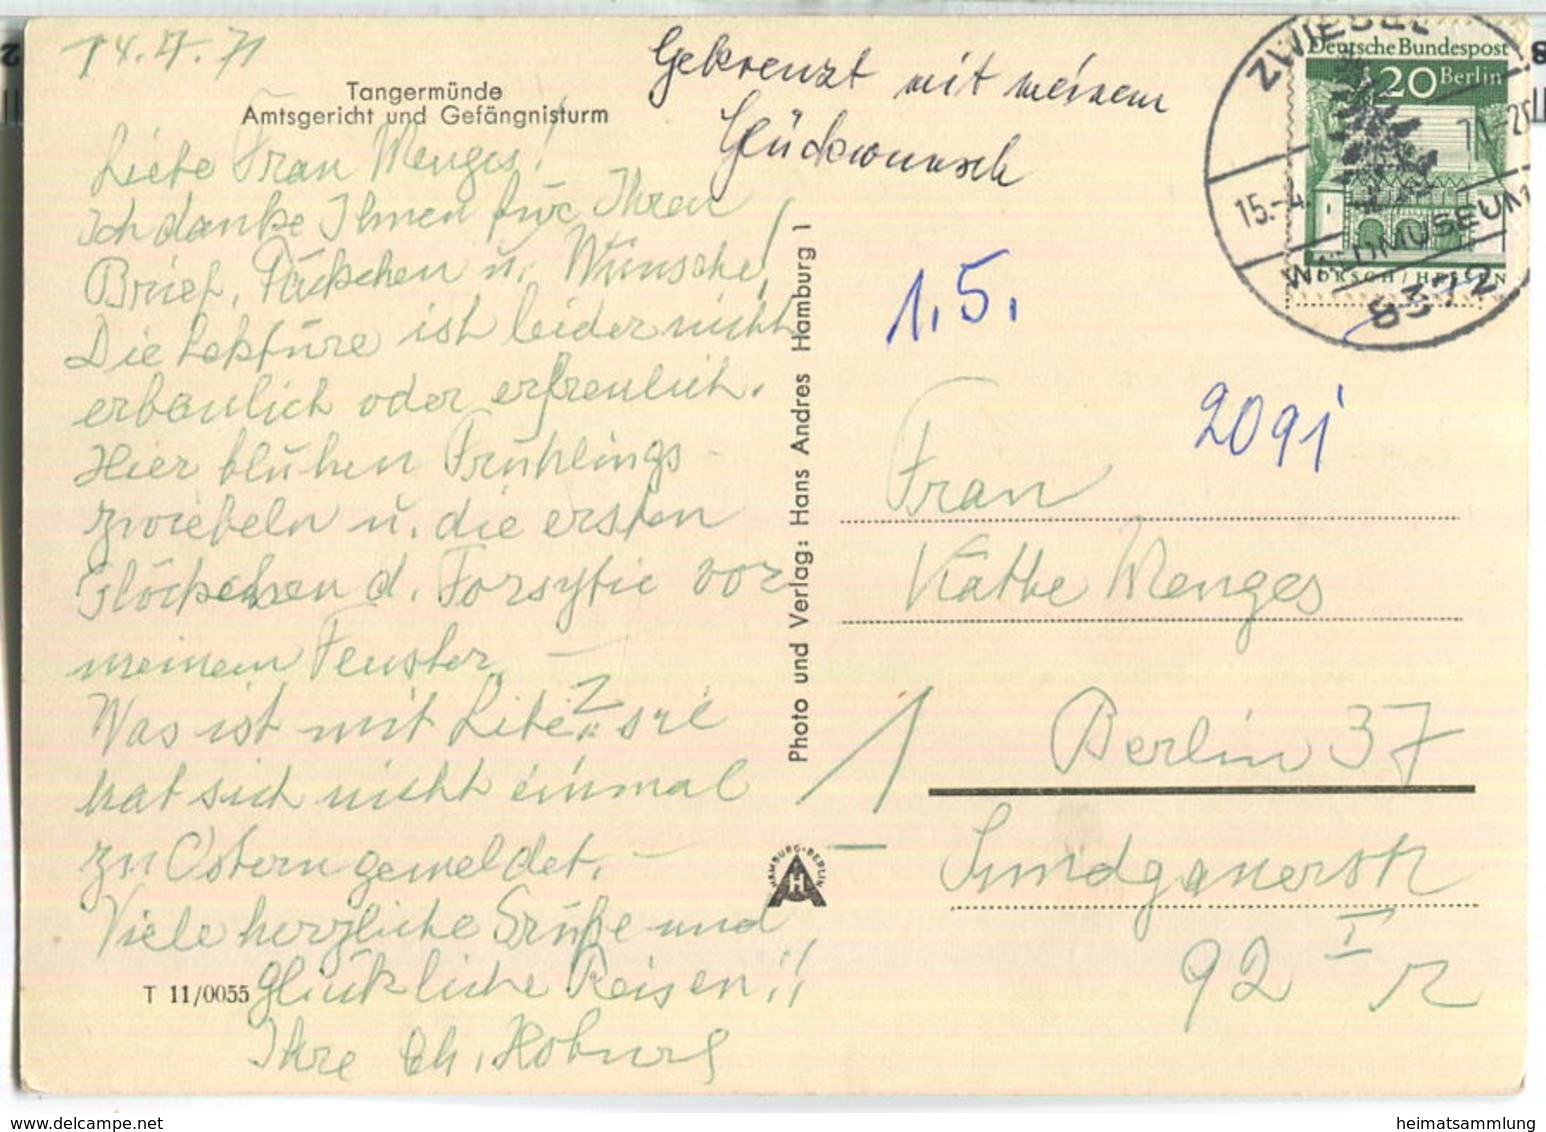 14.4.71
Tangermünde
Amtsgericht und Gefängnisturm
Gekreuzt mit meinem
Glückwunsch
Liebe Frau Menges!
Ich danke Ihnen für Ihren
Brief, Päckchen u. Wünsche!
Die Lektüre ist leider nicht
erbaulich oder erfreulich.
Hier blühen Frühlings-
zwiebeln u. die ersten
Glöckchen d. Forsytie vor
meinem Fenster. –
Was ist mit sie
hat sich nicht einmal
zu Ostern gemeldet. –
Viele herzliche Grüße und
glückliche Reisen!!
Ihre Ch. Hoburg
T 11/0055
Photo und Verlag: Hans Andres Hamburg 1
HAMBURG-BERLIN
AH
ZWIESEL
15.-4.71-20
WALDMUSEUM
8372
Deutsche Bundespost
20 Berlin
LORSCH/HESSEN
1.5.
2091
Frau
Käthe Menges
1 Berlin 37
Sundgauerstr
92 I r
heimatsammlung
www.delcampe.net